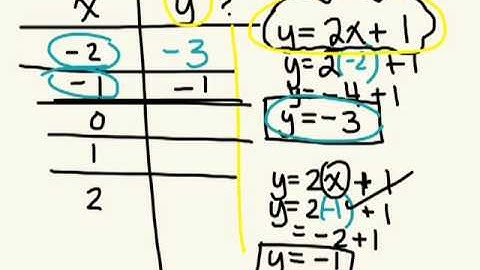 x y ?
-2 -3
-1 -1
0
1
2
y = 2x + 1
y = 2(-2) + 1
y = -4 + 1
y = -3
y = 2x + 1
y = 2(-1) + 1
= -2 + 1
y = -1